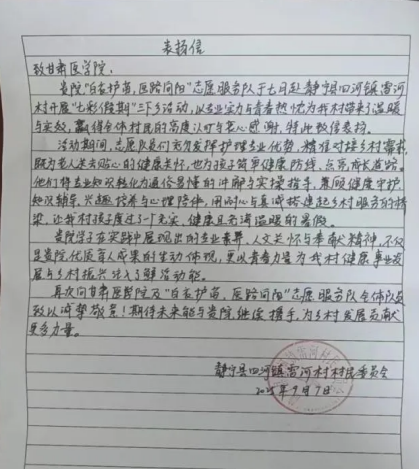 表扬信
致甘肃医学院：
贵院“白衣护苗，医路向阳”志愿服务队于七月赴静宁县四河镇雷河
村开展“七彩假期”三下乡活动，以专业实力与青春热忱为我村带来温暖
与实效，赢得全体村民的高度认可与衷心感谢，特此致信表扬。
活动期间，志愿队员们充分发挥护理专业优势，精准对接乡村需求，
既为老人送去贴心的健康关怀，也为孩子筑牢健康防线、点亮成长道路。
他们将专业知识转化为通俗易懂的讲解与实操指导，兼顾健康守护、
知识辅导、兴趣培养与心理陪伴，用耐心与真诚搭建起乡村服务的桥
梁，让我村孩子度过了一个充实、健康且充满温暖的暑假。
贵院学子在实践中展现出的专业素养、人文关怀与奉献精神，不仅
是贵院优质育人成果的生动体现，更以青春力量为我村健康事业发
展与乡村振兴注入了鲜活动能。
再次向甘肃医学院及“白衣护苗，医路向阳”志愿服务队全体队员
致以诚挚敬意！期待未来能与贵院继续携手，为乡村发展贡献
更多力量。
静宁县四河镇雷河村村民委员会
2025年9月9日